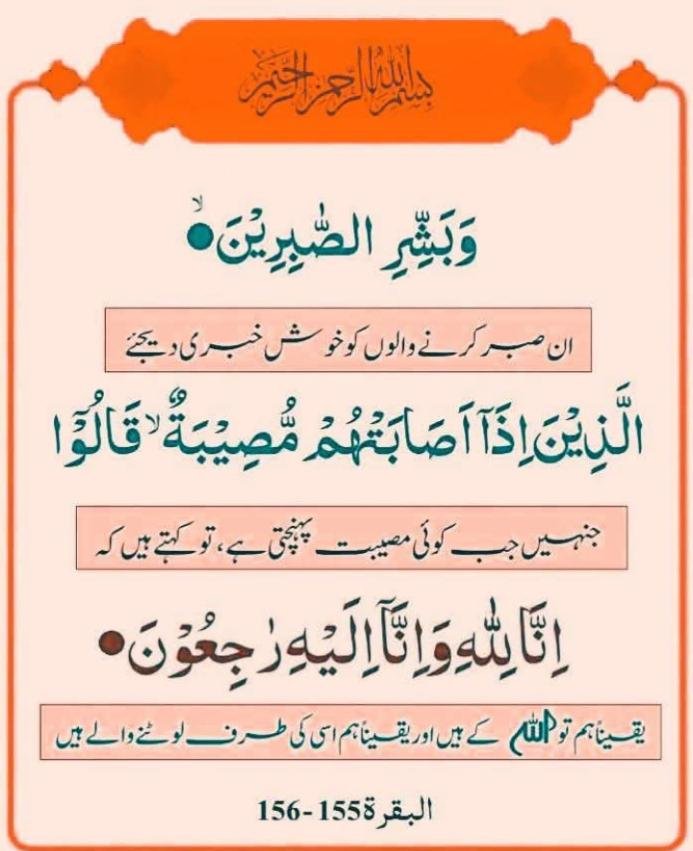 بسم الله الرحمن الرحيم
وَبَشِّرِ الصّٰبِرِيْنَ ۙ●
ان صبر کرنے والوں کو خوش خبری دیجئے
الَّذِيْنَ اِذَآ اَصَابَتْهُمْ مُّصِيْبَةٌ ۙ قَالُوْٓا
جنہیں جب کوئی مصیبت پہنچتی ہے، تو کہتے ہیں کہ
اِنَّا لِلّٰهِ وَاِنَّآ اِلَيْهِ رٰجِعُوْنَ●
یقیناً ہم تو اللہ کے ہیں اور یقیناً ہم اسی کی طرف لوٹنے والے ہیں
البقرة155-156